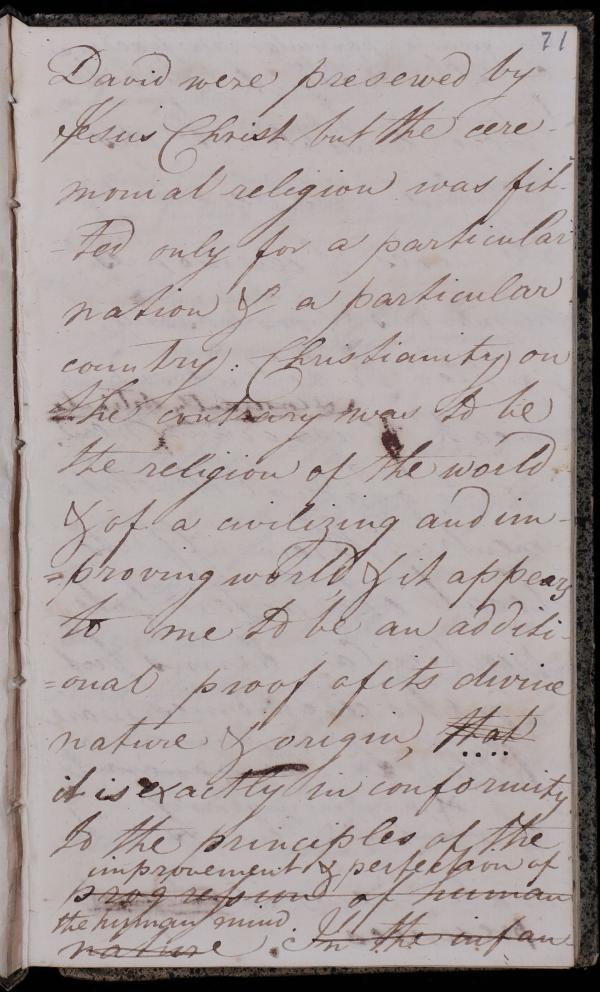 71
David were preserved by
Jesus Christ but the cere-
monial religion was fit-
-ted only for a particular
nation & a particular
country. Christianity on
the contrary was to be
the religion of the world
& of a civilizing and im-
=proving world & it appears
to me to be an additi-
=onal proof of its divine
nature & origin, that
it is exactly in conformity
to the principles of the
improvement & perfection of
progression of human
the human mind.
nature. In the infan-